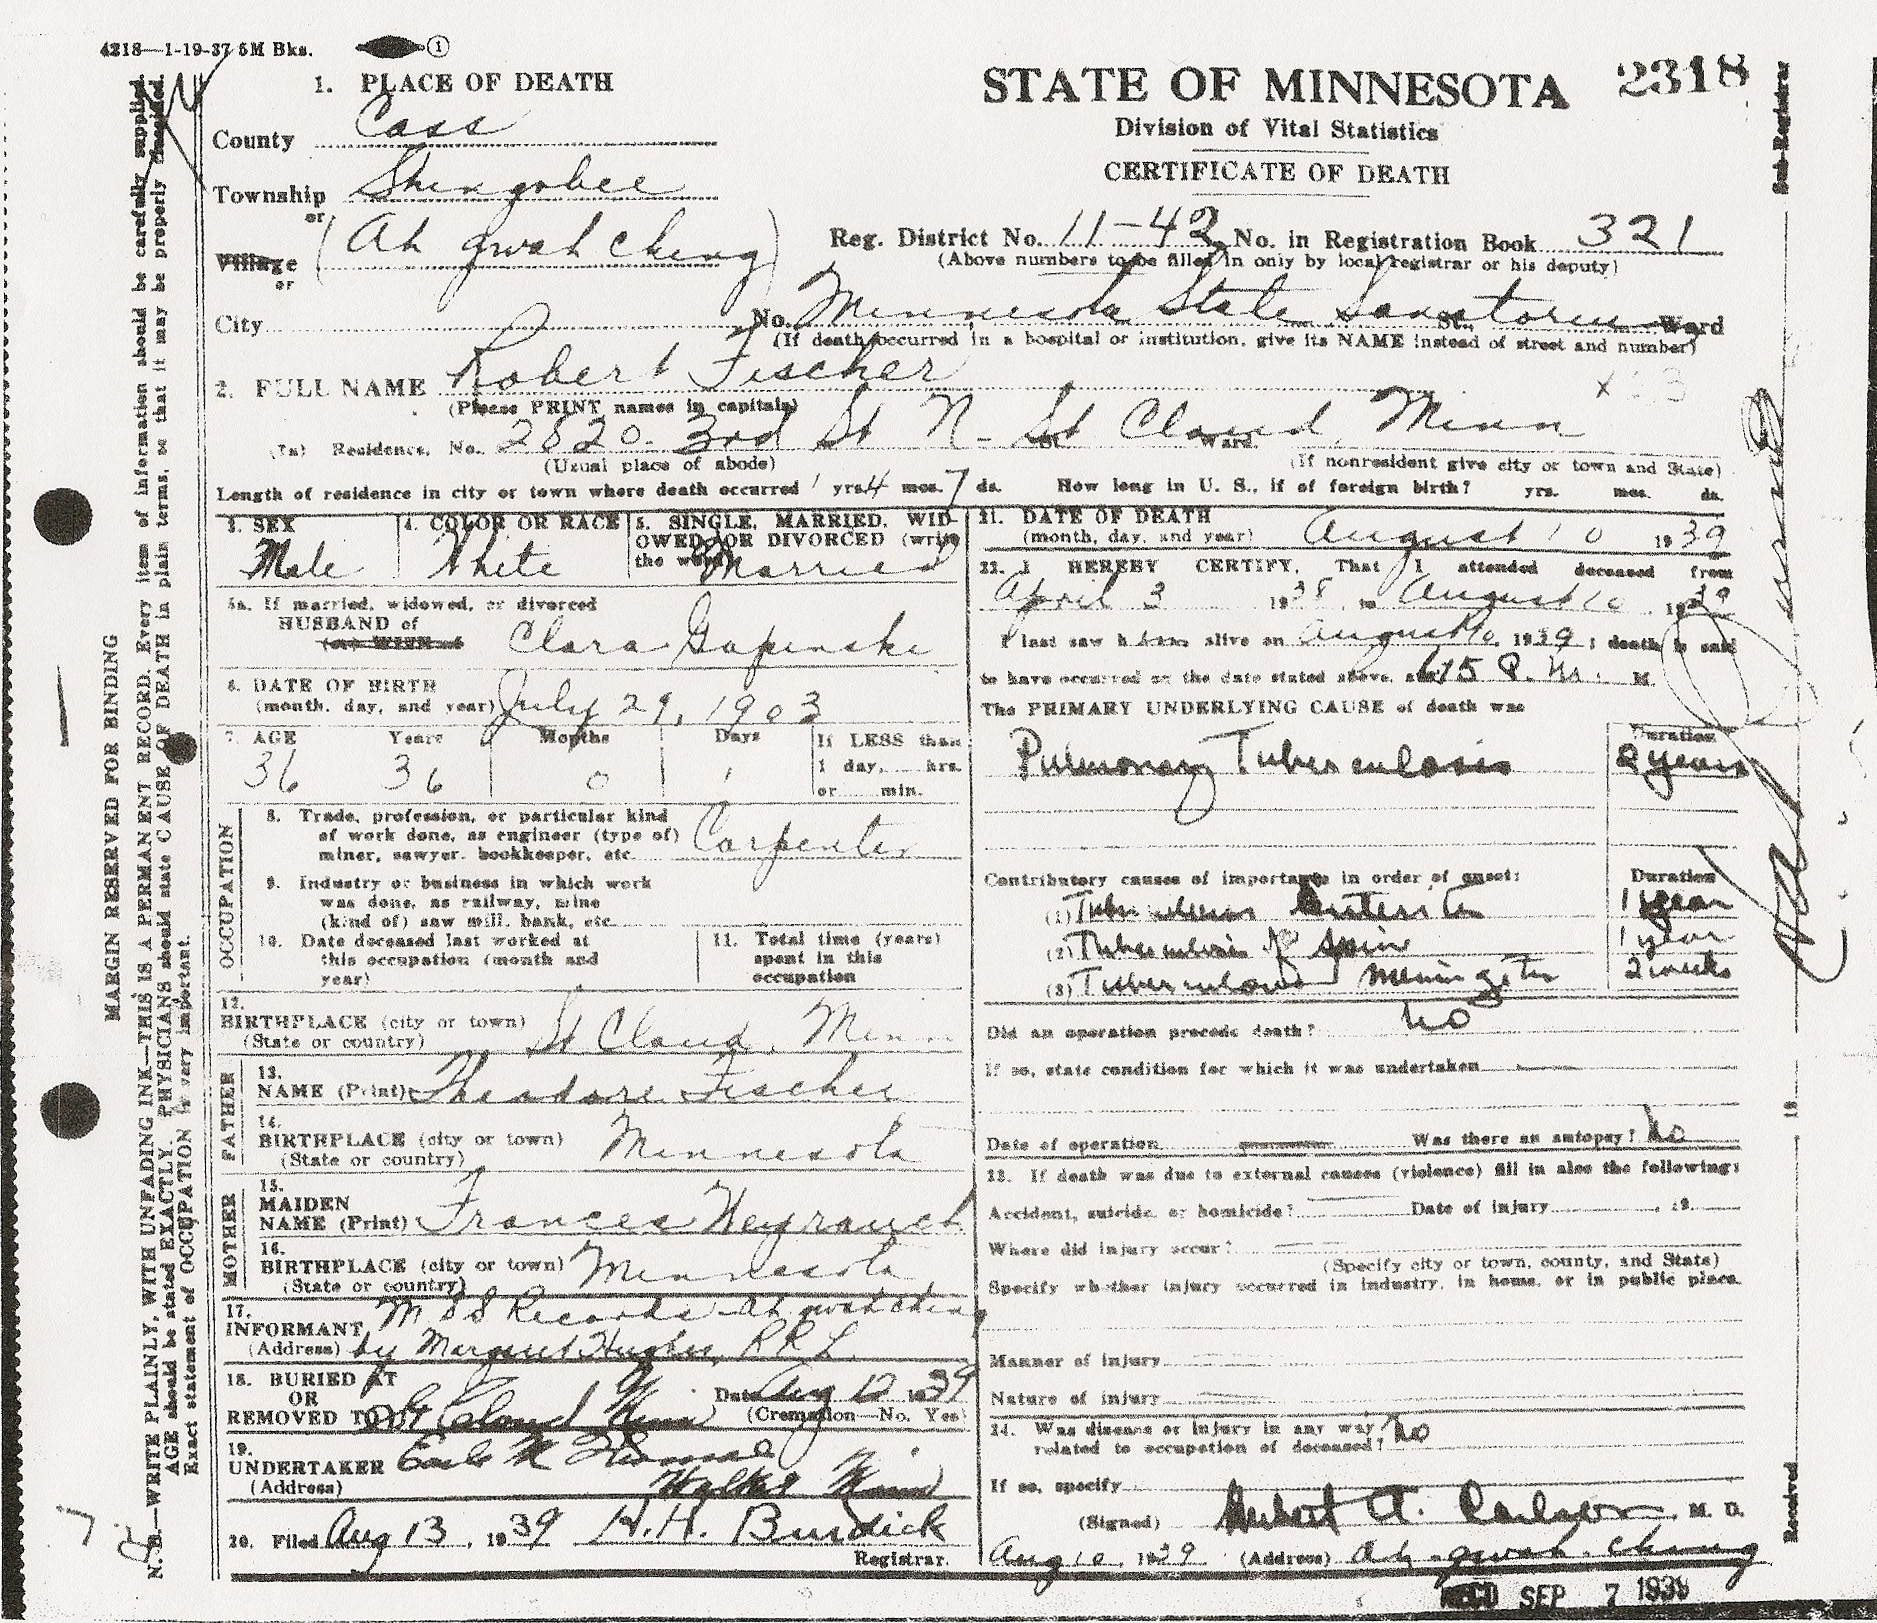 4218—1-19-37 5M Bks. 1
1. PLACE OF DEATH
STATE OF MINNESOTA 2318
Division of Vital Statistics
CERTIFICATE OF DEATH
County Cass
Township Shingobee
or
Village (Ah gwah ching)
or
City
Reg. District No. 11-42 No. in Registration Book 321
(Above numbers to be filled in only by local registrar or his deputy)
No. Minnesota State Sanatorium St., Ward
(If death occurred in a hospital or institution, give its NAME instead of street and number)
2. FULL NAME Robert Fischer
(Please PRINT names in capitals)
(2a) Residence, No. 2820- 3rd St N- St. St Cloud, Ward. Minn
(Usual place of abode) (If nonresident give city or town and State)
Length of residence in city or town where death occurred 1 yrs. 4 mos. 7 ds. How long in U. S., if of foreign birth? yrs. mos. ds.
3. SEX Male
4. COLOR OR RACE White
5. SINGLE, MARRIED, WIDOWED, OR DIVORCED (write the word) Married
5a. If married, widowed, or divorced
HUSBAND of
(or) WIFE of Clara Gapinski
6. DATE OF BIRTH
(month, day, and year) July 29, 1903
7. AGE Years Months Days If LESS than
36 36 0 1 1 day, hrs.
or min.
OCCUPATION
8. Trade, profession, or particular kind
of work done, as engineer (type of)
miner, sawyer, bookkeeper, etc. Carpenter
9. Industry or business in which work
was done, as railway, mine
(kind of) saw mill, bank, etc.
10. Date deceased last worked at
this occupation (month and
year)
11. Total time (years)
spent in this
occupation
12.
BIRTHPLACE (city or town) St Cloud, Minn
(State or country)
FATHER
13.
NAME (Print) Theodore Fischer
14.
BIRTHPLACE (city or town) Minnesota
(State or country)
MOTHER
15.
MAIDEN
NAME (Print) Frances Weyrauch
16.
BIRTHPLACE (city or town) Minnesota
(State or country)
17. M S S Records - Ah gwah ching
INFORMANT
(Address) by Margaret Hughes, R R L
18. BURIED AT
OR
REMOVED TO St Cloud Minn Date Aug 12 1939
(Cremation—No. Yes)
19.
UNDERTAKER
(Address) Walker Minn
20. Filed Aug 13, 1939 H.H. Burdick
Registrar.
21. DATE OF DEATH
(month, day, and year) August 10 1939
22. I HEREBY CERTIFY, That I attended deceased from
April 3 1938 to August 10 1939
I last saw him alive on August 10, 1939; death is said
to have occurred on the date stated above, at 15 P. M. M
The PRIMARY UNDERLYING CAUSE of death was
Duration
Pulmonary Tuberculosis 2 years
Contributory causes of importance in order of onset: Duration
(1) Tuberculous Enteritis 1 year
(2) Tuberculosis of Spine 1 year
(3) Tuberculous Meningitis 2 weeks
Did an operation precede death? No
If so, state condition for which it was undertaken
Date of operation Was there an autopsy? No
23. If death was due to external causes (violence) fill in also the following:
Accident, suicide, or homicide? Date of injury , 19
Where did injury occur?
(Specify city or town, county, and State)
Specify whether injury occurred in industry, in home, or in public place.
Manner of injury
Nature of injury
24. Was disease or injury in any way
related to occupation of deceased? No
If so, specify
(Signed) Hubert A. Carlson, M. D.
Aug 10, 1939 (Address) Ah-gwah-ching
REC'D SEP 7 1939
MARGIN RESERVED FOR BINDING
N. B.—WRITE PLAINLY, WITH UNFADING INK—THIS IS A PERMANENT RECORD. Every item of information should be carefully supplied.
AGE should be stated EXACTLY. PHYSICIANS should state CAUSE OF DEATH in plain terms, so that it may be properly classified.
Exact statement of OCCUPATION is very important.
Sub-Registrar
19
Received